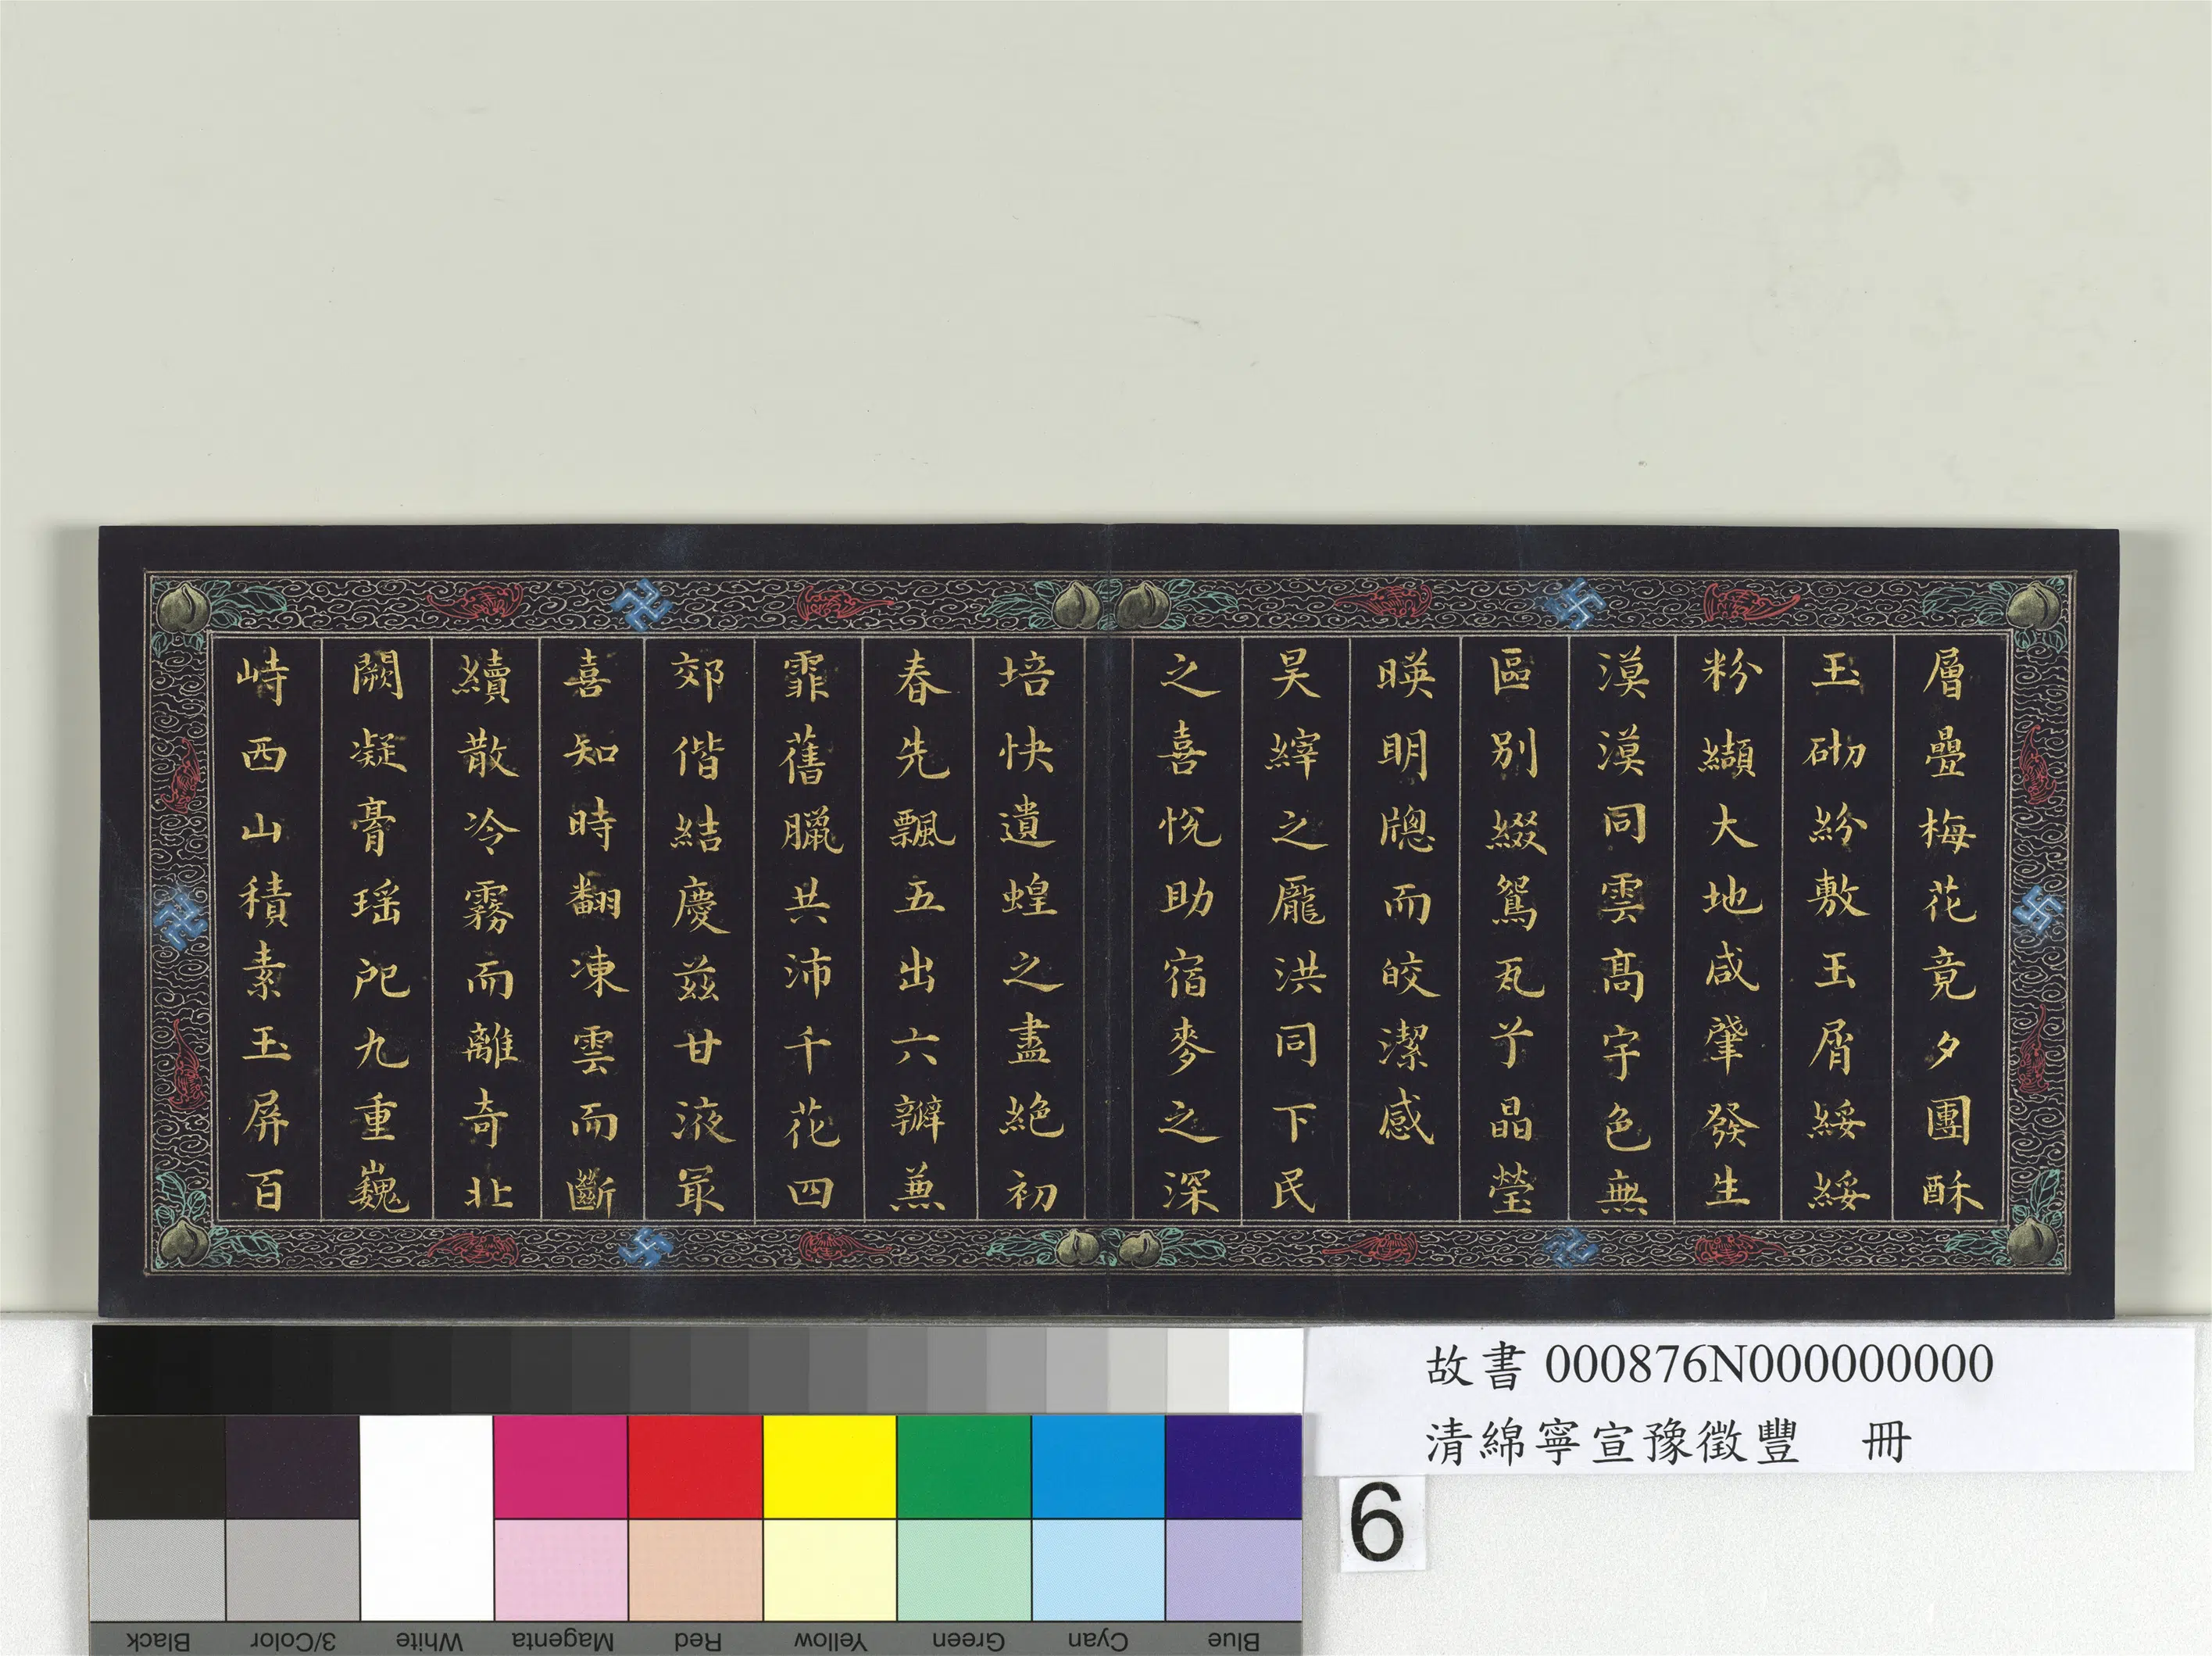 層疊梅花竟夕團酥
玉砌紛敷玉屑綏綏
粉纈大地咸肇發生
漠漠同雲髙宇色無
區別綴鴛瓦兮晶瑩
暎明牕而皎潔感
昊縡之龎洪同下民
之喜悅助宿麥之深
培快遺蝗之盡絶初
春先飄五出六瓣蒹
霏舊臘共沛千花四
郊偕結慶兹甘液冣
喜知時翻凍雲而斷
續散冷霧而離奇北
闕凝膏瑶戺九重巍
峙西山積素玉屏百
故書 000876N000000000
清綿寧宣豫徵豐 冊
6
Black 3/Color White Magenta Red Yellow Green Cyan Blue